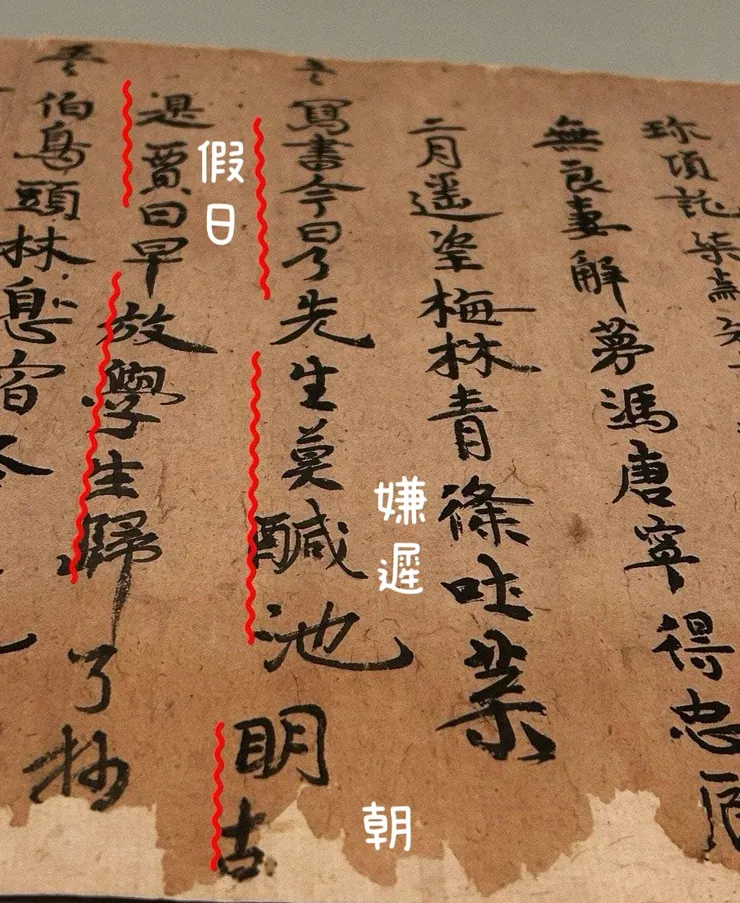 珎項託柒
無良妻解夢馮唐寧得忠
二月遥望梅林青條吐葉
寫書今日了先生莫醎池明
嫌遲
朝
是賈日早放學生歸了抄
假日
伯鳥頭林息宿